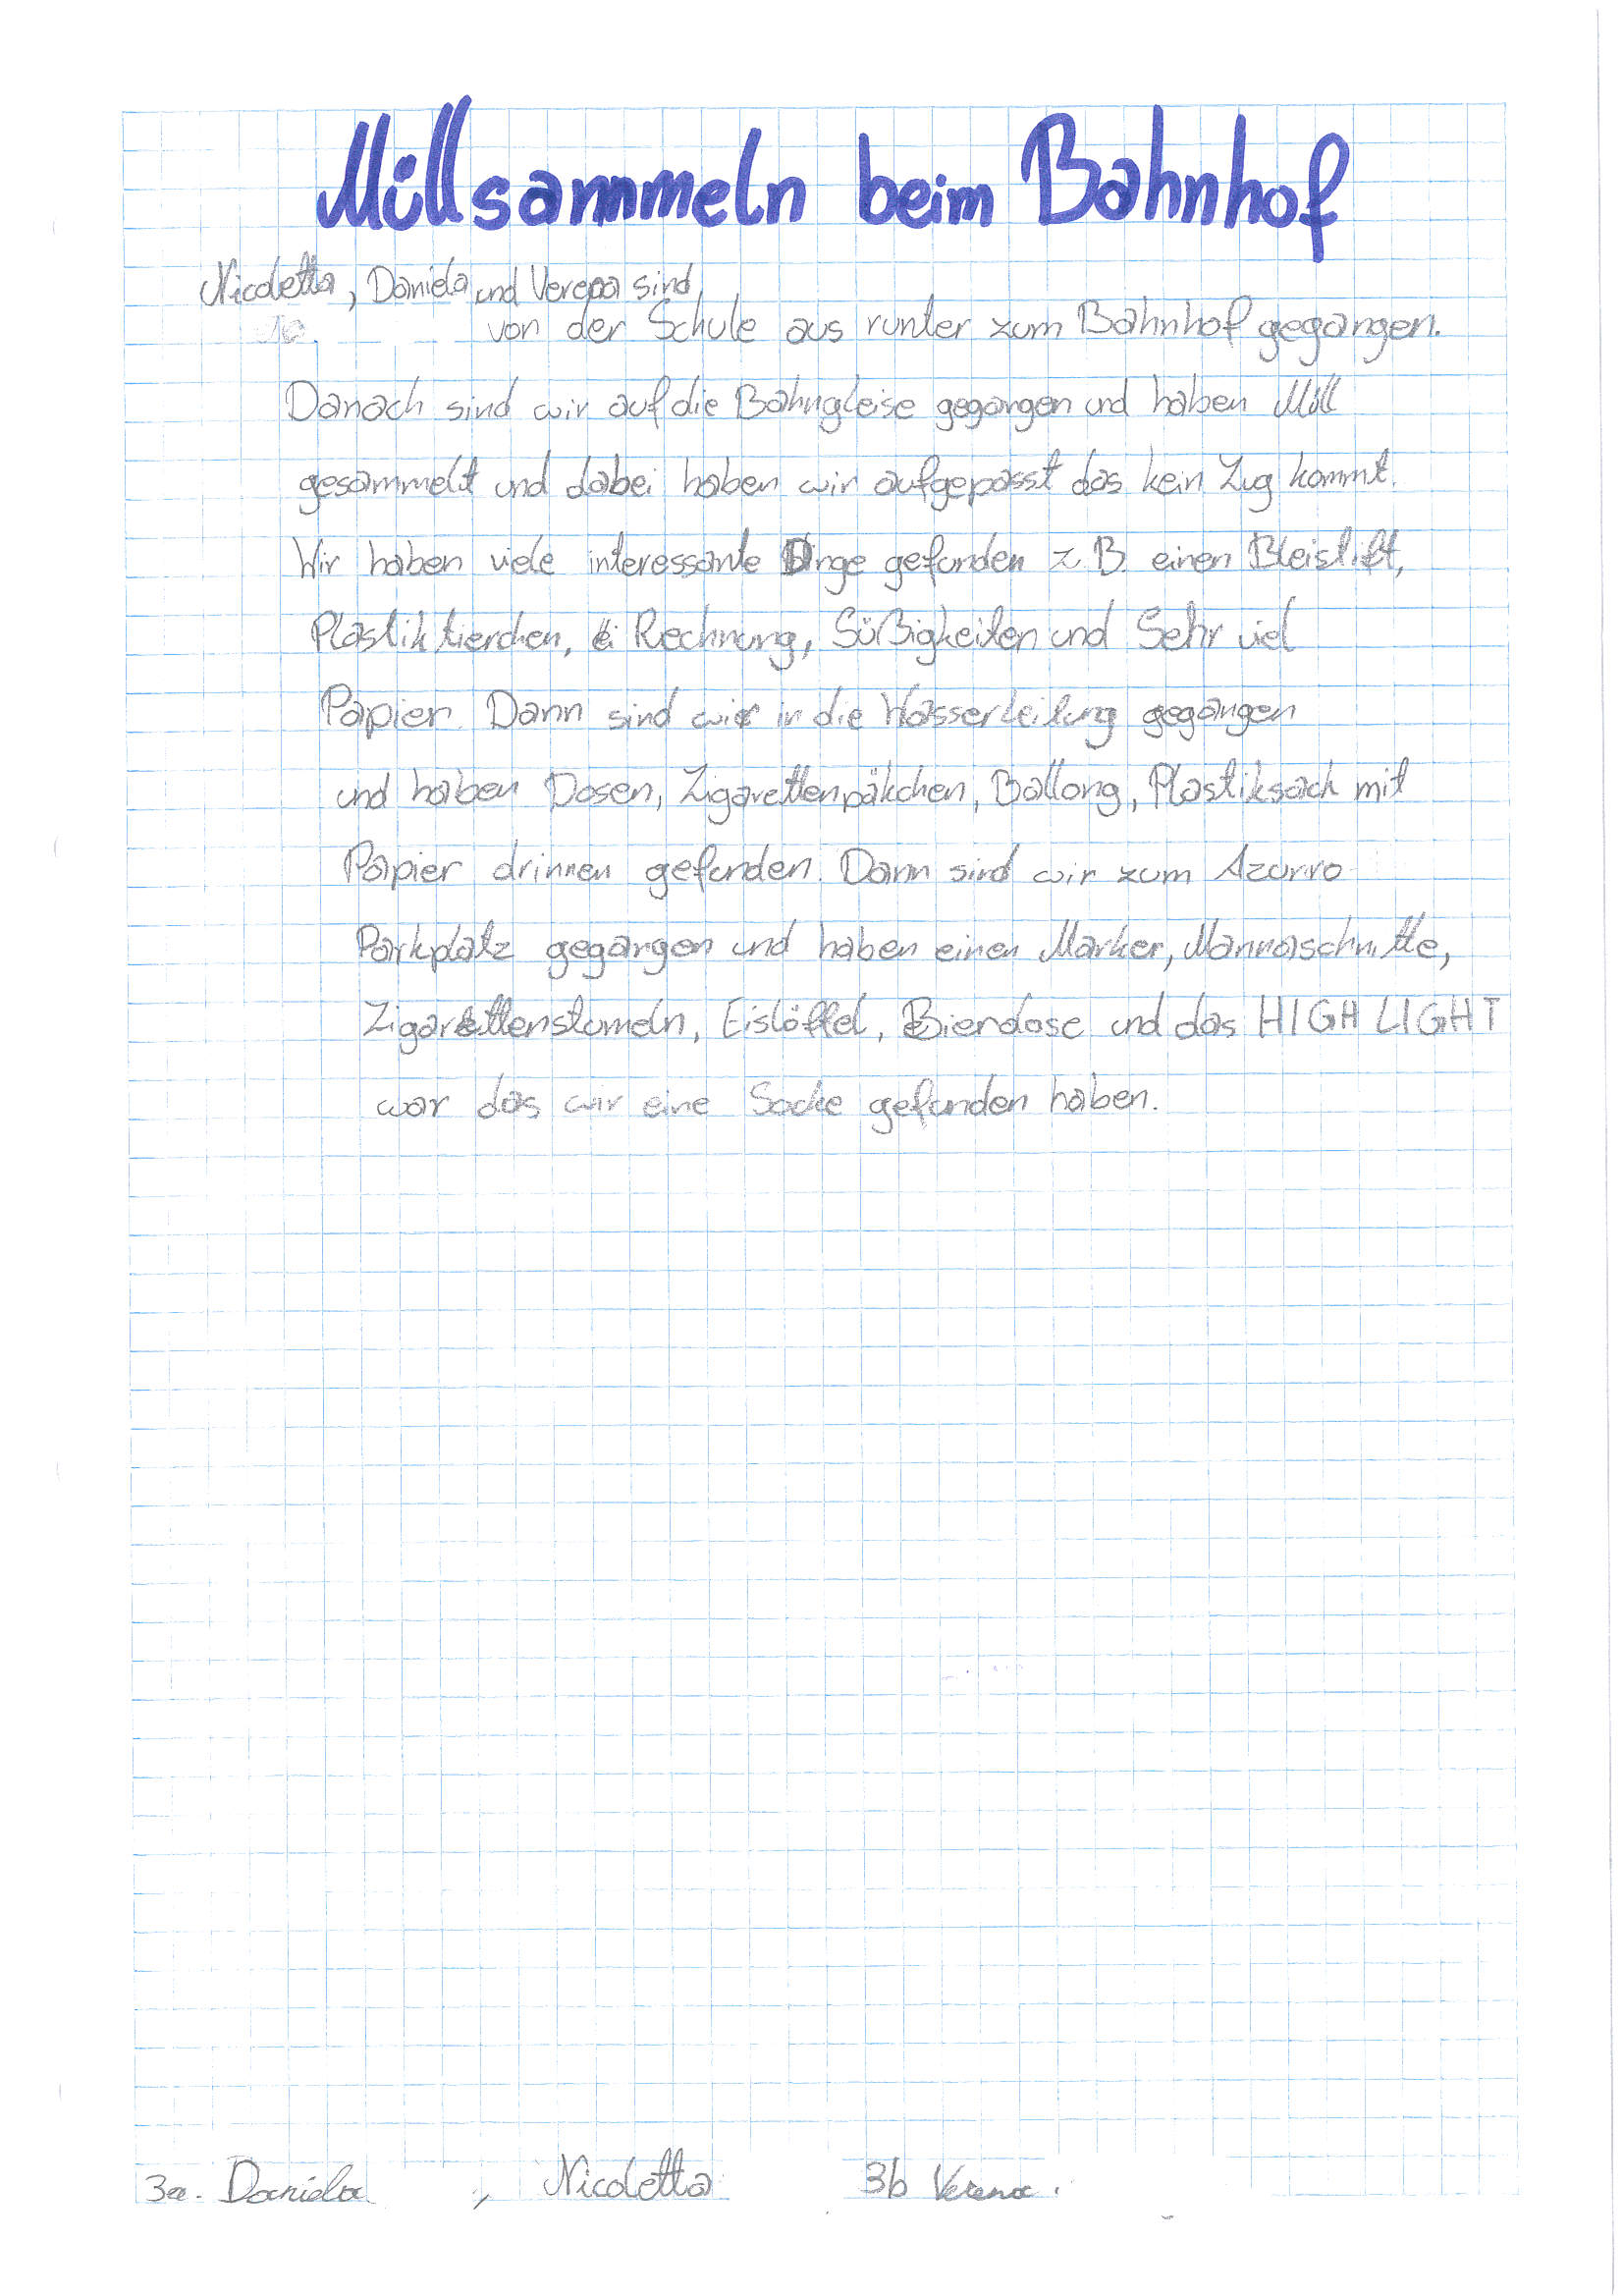 Müllsammeln beim Bahnhof
Nicoletta, Daniela und Verena sind
von der Schule aus runter zum Bahnhof gegangen.
Danach sind wir auf die Bahngleise gegangen und haben Müll
gesammelt und dabei haben wir aufgepasst das kein Zug kommt.
Wir haben viele interessante Dinge gefunden z.B. einen Bleistift,
Plastiktierchen, Rechnung, Süßigkeiten und Sehr viel
Papier. Dann sind wir in die Wasserleitung gegangen
und haben Dosen, Zigarettenpäkchen, Ballong, Plastiksack mit
Papier drinnen gefunden. Dann sind wir zum Azurro
Parkplatz gegangen und haben einen Marker, Mannaschnitte,
Zigarettenstumeln, Eislöffel, Bierdose und das HIGH LIGHT
war das wir eine Socke gefunden haben.
3a. Daniela , Nicoletta 3b Verena.